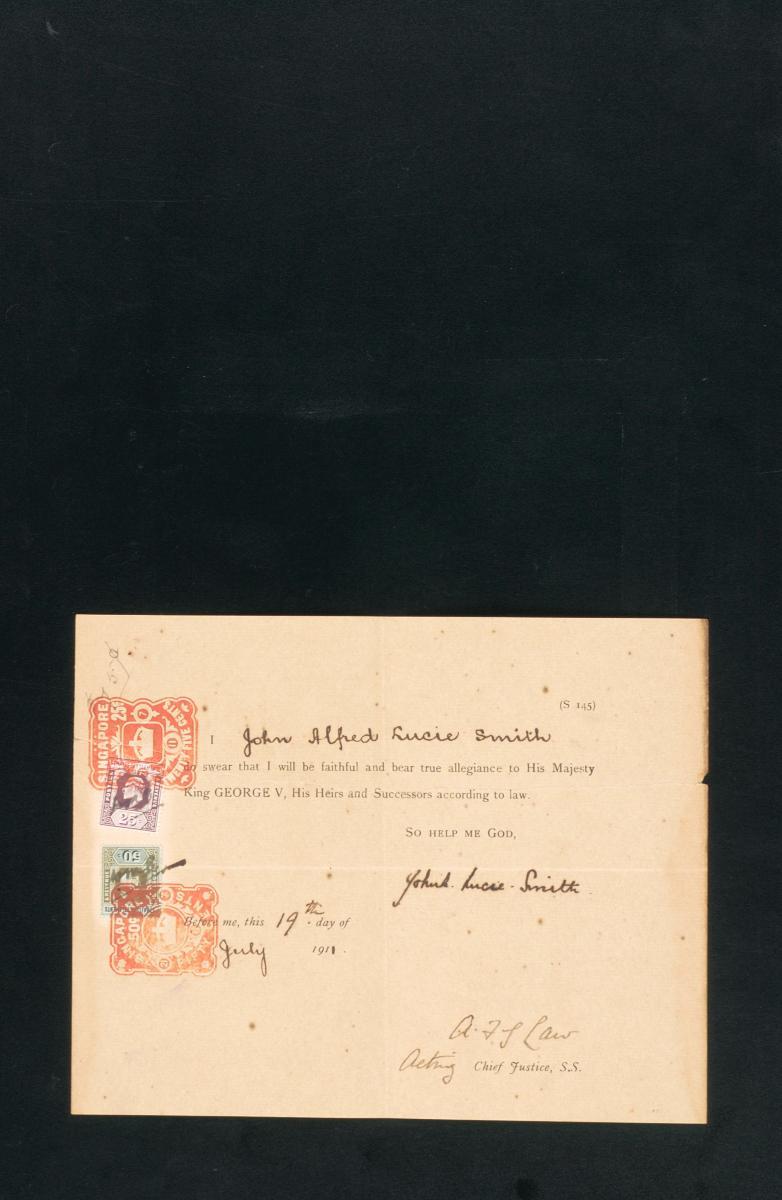 (S 145)
SINGAPORE 25¢
TWENTY FIVE CENTS
I John Alfred Lucie Smith
do swear that I will be faithful and bear true allegiance to His Majesty
King GEORGE V, His Heirs and Successors according to law.
25c
SO HELP ME GOD,
50
John A. Lucie-Smith
50¢
Before me, this 19th day of
July 1911.
A. F. G. Law
Acting Chief Justice, S.S.